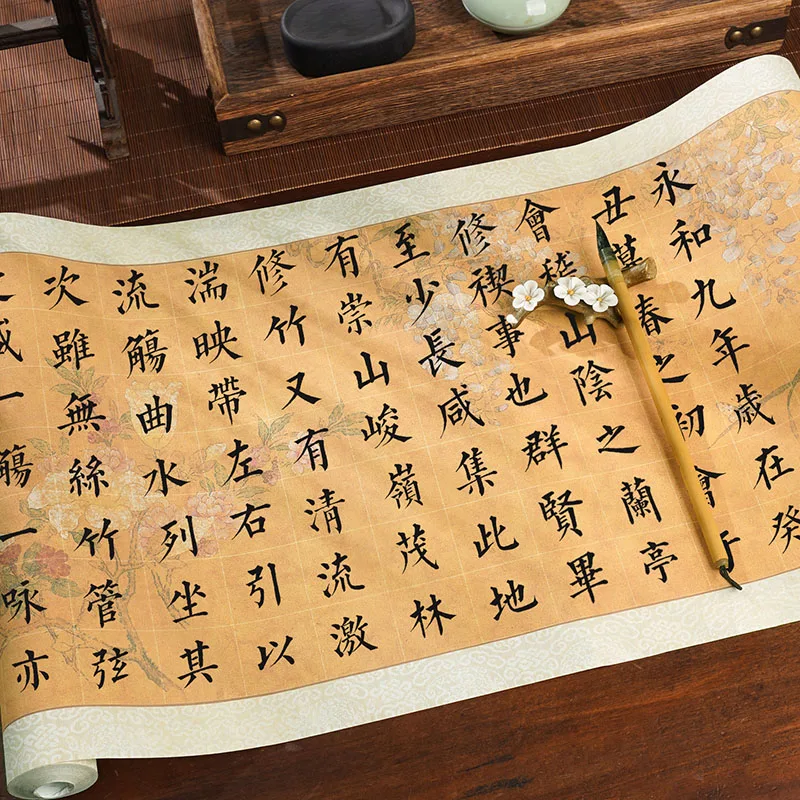 永和九年歲在癸
丑暮春之初會于
會稽山陰之蘭亭
修禊事也群賢畢
至少長咸集此地
有崇山峻嶺茂林
修竹又有清流激
湍映帶左右引以
流觴曲水列坐其
次雖無絲竹管弦
之盛一觴一咏亦